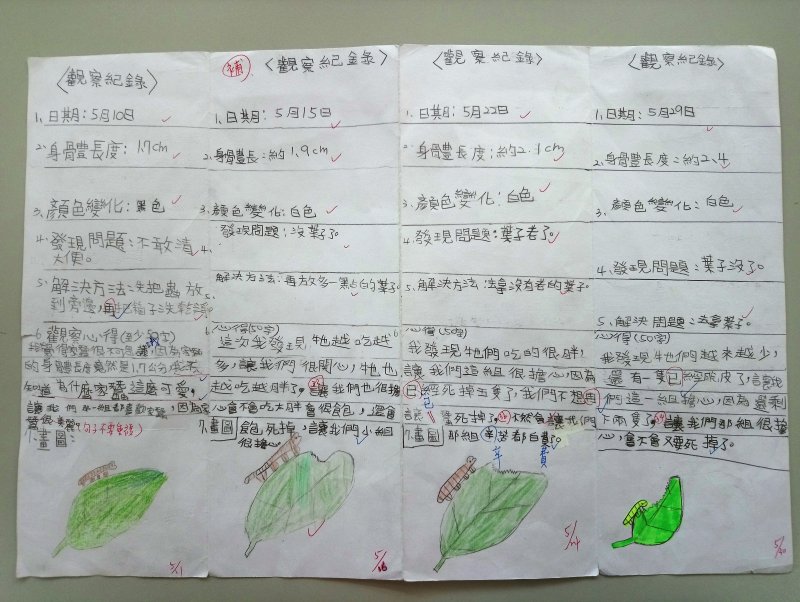 〈觀察紀錄〉
1、日期：5月10日
2、身體長度：1.7cm
3、顏色變化：黑色
4、發現問題：不敢清
大便。
5、解決方法：先把蟲放
到旁邊，再
6、觀察心得(至少50字)
的身體長度竟然是1.7公分，我不
知道為什麼家蠶這麼可愛。
讓我們那一組都喜歡家蠶，因為家
句子不要重複
7、畫圖：
5/1
補
〈觀察紀錄〉
1、日期：5月15日
2、身體長度：約1.9cm
3、顏色變化：白色
4、發現問題：沒葉子了。
5、解決方法：再方多一點白的葉子
6、心得(50字)
這次我發現牠越吃越
多，讓我們很開心，牠也
越吃越胖了。讓我們也很擔
心會不會吃太胖會很飽，還會
飽死掉，讓我們小組
很擔心。
7、畫圖
5/16
〈觀察紀錄〉
1、日期：5月22日
2、身體長度：約2.1cm
3、顏色變化：白色
4、發現問題：葉子老了。
5、解決方法：去拿沒有老的葉子。
6、心得(50字)
我發現牠們吃的很胖，
讓我們這組很擔心，因為
已經死掉主隻了，我們不想再
讓蠶死掉了。不然會讓我們
那組辛苦都白費了。
已
辛 費
7、畫圖
5/24
〈觀察紀錄〉
1、日期：5月29日
2、身體長度：約2.4
3、顏色變化：白色
4、發現問題：葉子沒了。
5、解決問題：去拿葉子。
心得(50字)
我發現牠們越來越少，
還有一隻已經成皮了，讓我
們這一組擔心，因為還剩
下兩隻了，讓我們那組很擔
心，會不會又要死掉了。
5/30